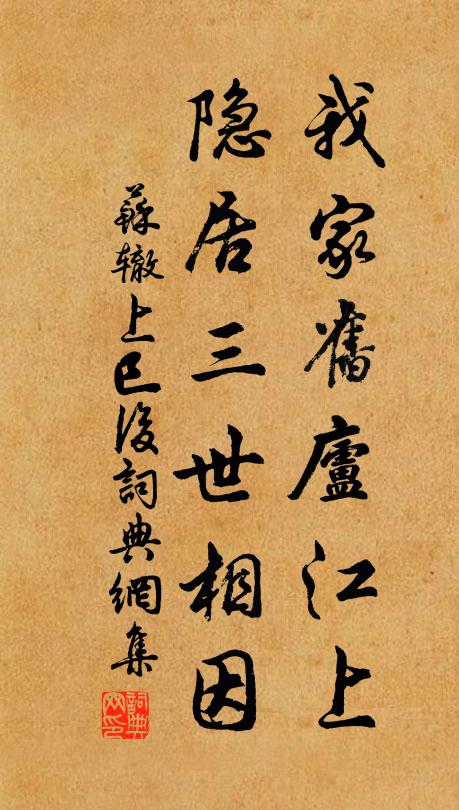 我家舊廬江上
隐居三世相因
蘇辙上巳後詞典網集
詞典网印